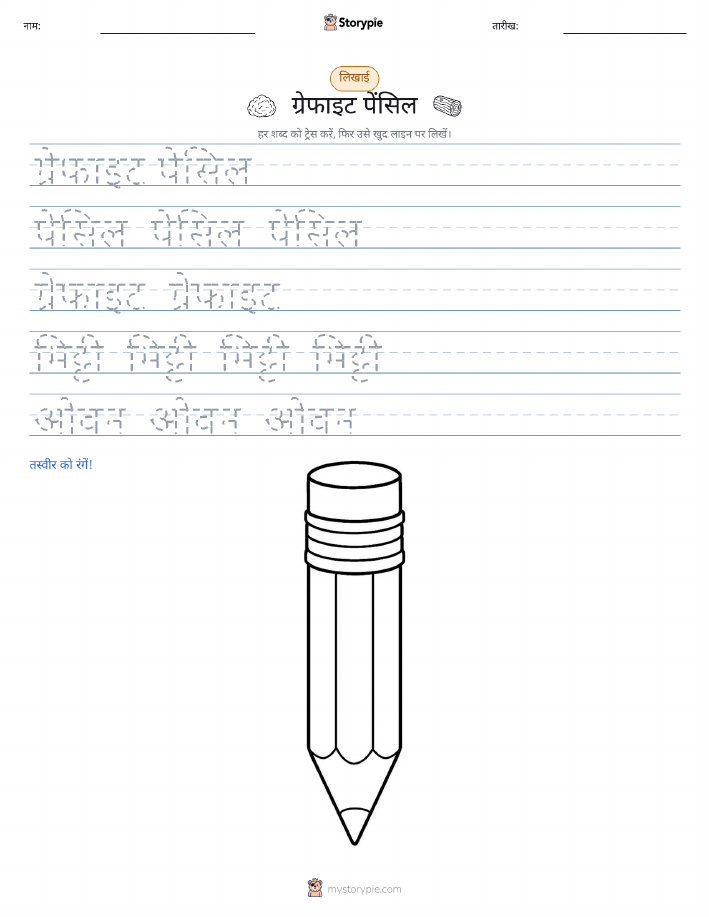 नाम:
Storypie
तारीख:
लिखाई
ग्रेफाइट पेंसिल
हर शब्द को ट्रेस करें, फिर उसे खुद लाइन पर लिखें।
ग्रेफाइट पेंसिल
पेंसिल पेंसिल पेंसिल
ग्रेफाइट ग्रेफाइट
मिट्टी मिट्टी मिट्टी मिट्टी
ओवन ओवन ओवन
तस्वीर को रंगें!
mystorypie.com